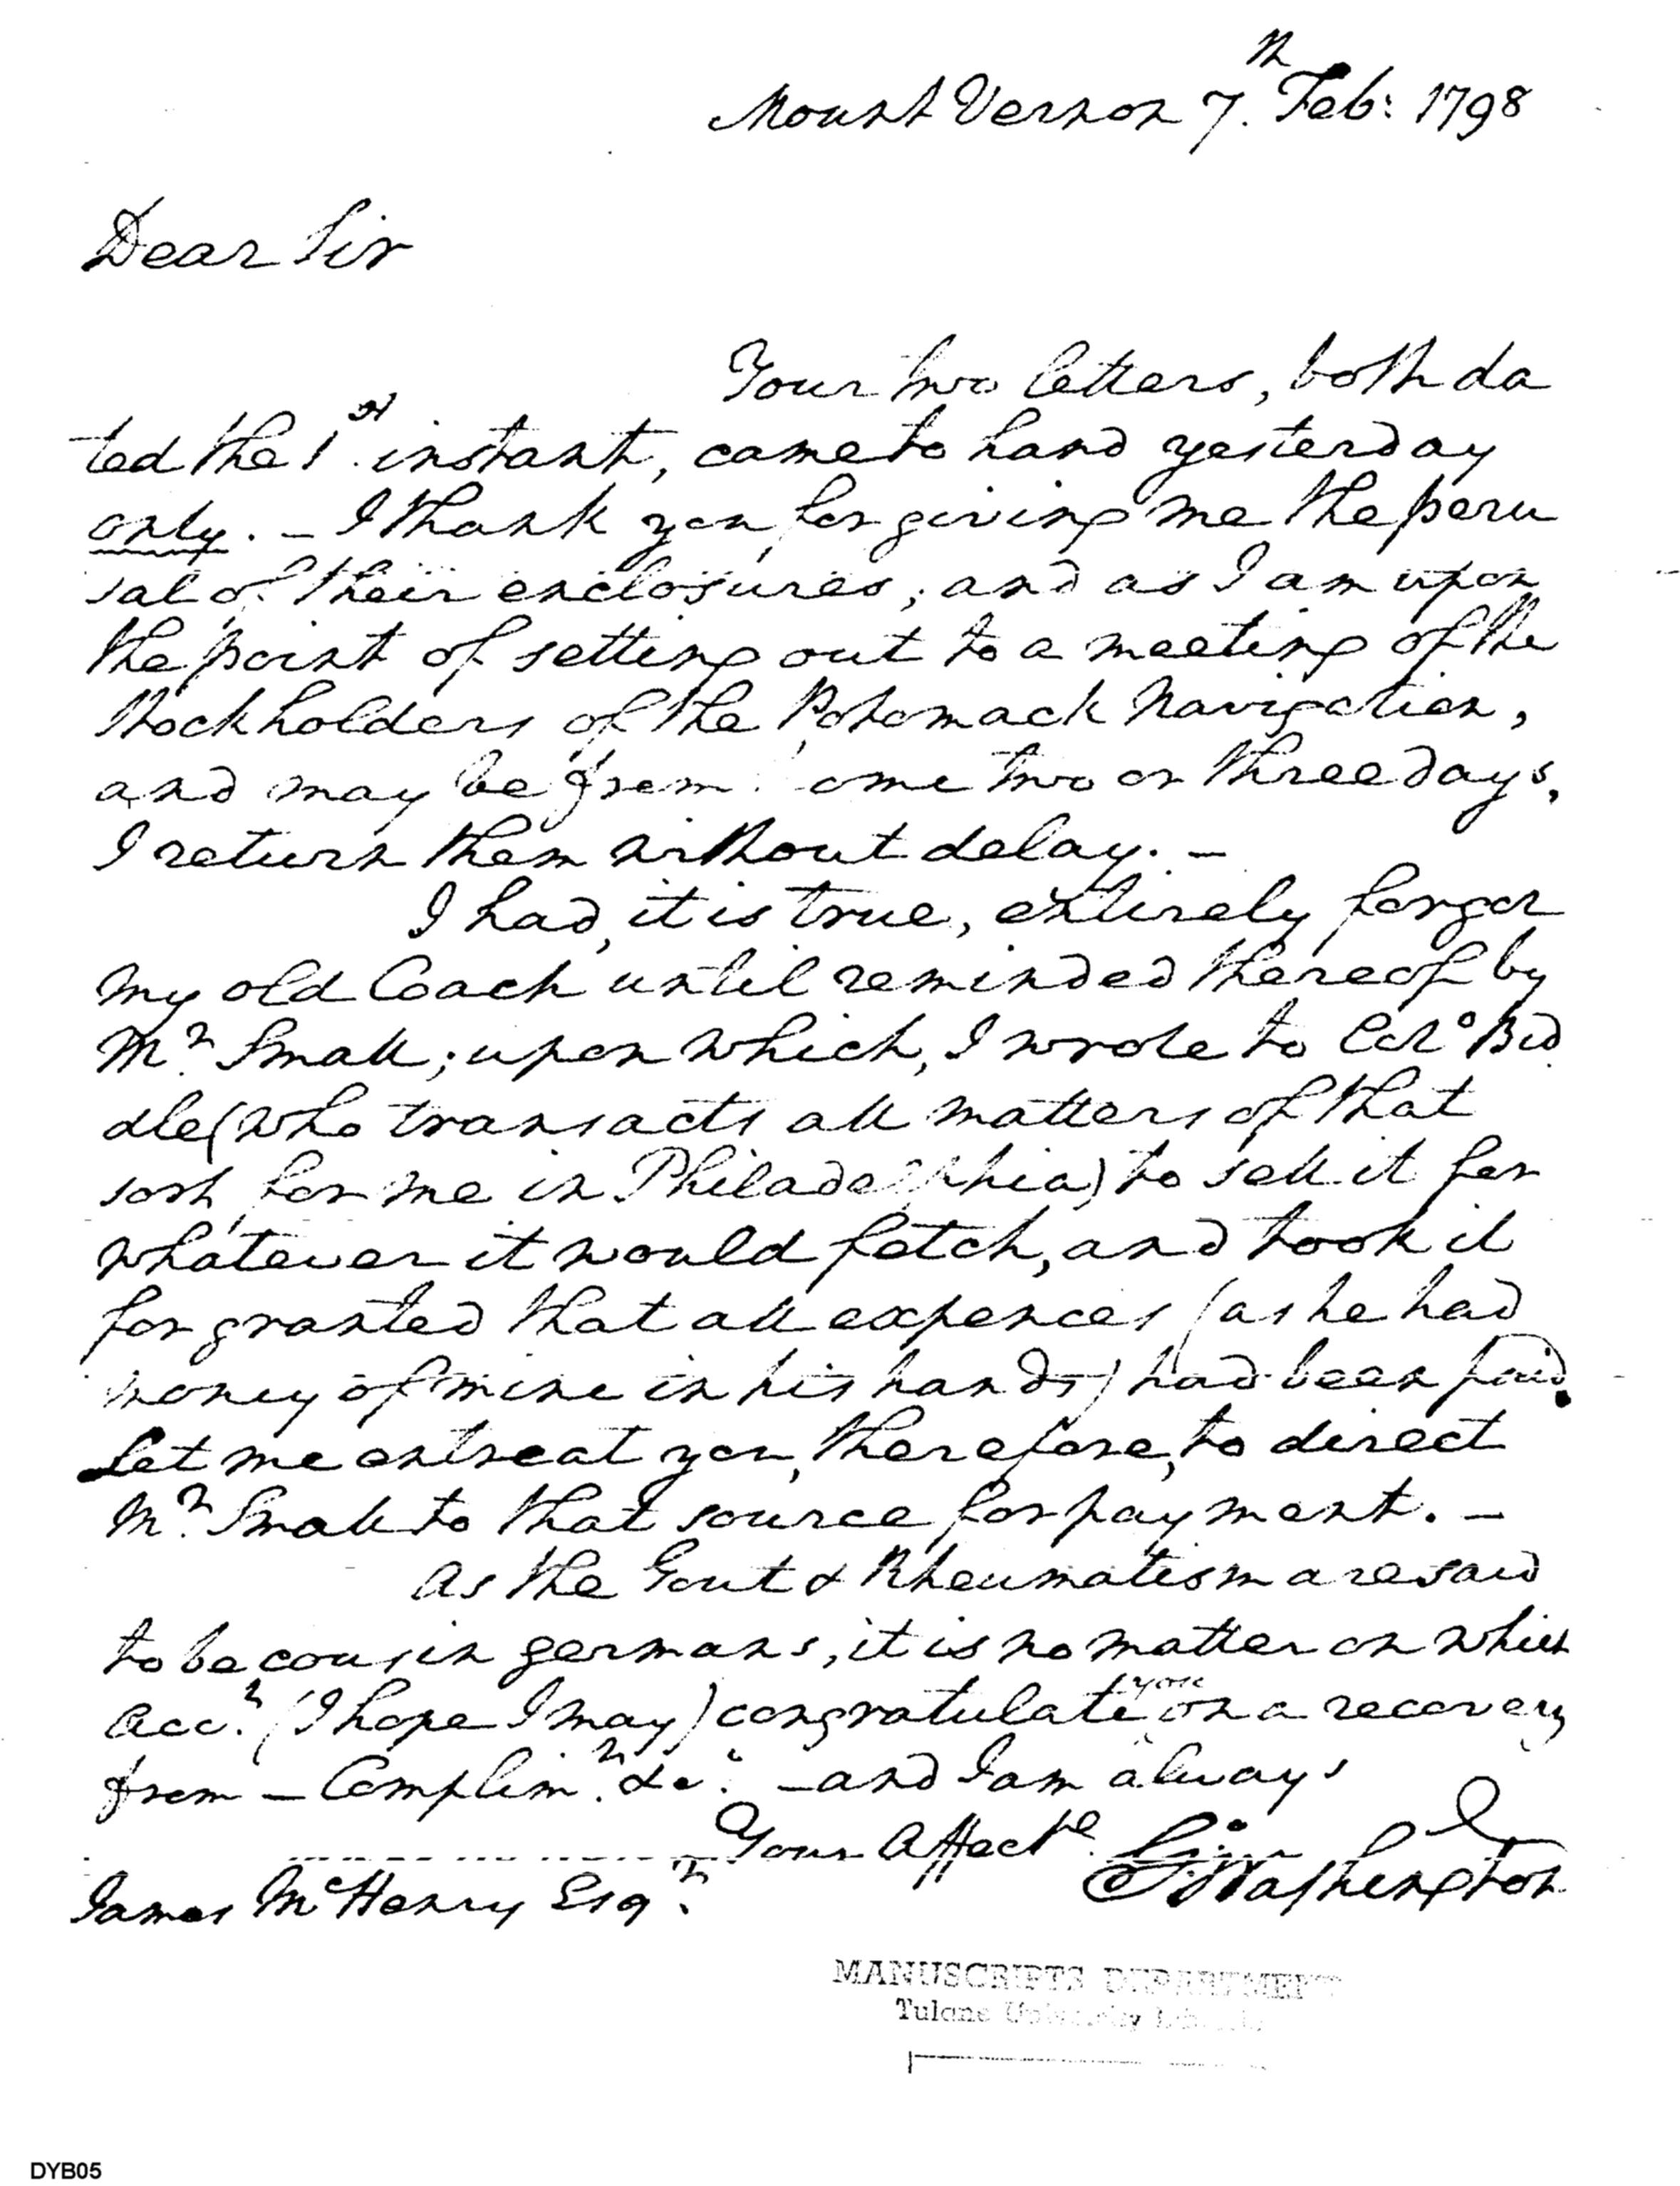 Mount Vernon 7.th Feb: 1798
Dear Sir
Your two letters, both da
ted the 1st. instant, came to hand yesterday
only. – I thank you for giving me the peru
sal of their enclosures; and as I am upon
the point of setting out to a meeting of the
Stockholders of the Potomack Navigation,
and may be from ome two or three days,
I return them without delay. –
I had, it is true, entirely forgot
my old Coach until reminded thereof by
Mr. Small; upon which, I wrote to Colo Bid
dle (who transacts all matters of that
sort for me in Philadelphia) to sell it for
whatever it would fetch, and took it
for granted that all expences (as he had
money of mine in his hands) had been paid.
Let me entreat you, therefore, to direct
Mr. Small to that source for payment. –
As the Gout & Rheumatism are said
to be cousin germans, it is no matter on which
Acct. (I hope I may) congratulate you on a recovery
from – Complimt. &c. – and I am always
Your Affecte.
Go: Washington
James McHenry Esqr.
MANUSCRIPTS DEPARTMENT
Tulane University
DYB05